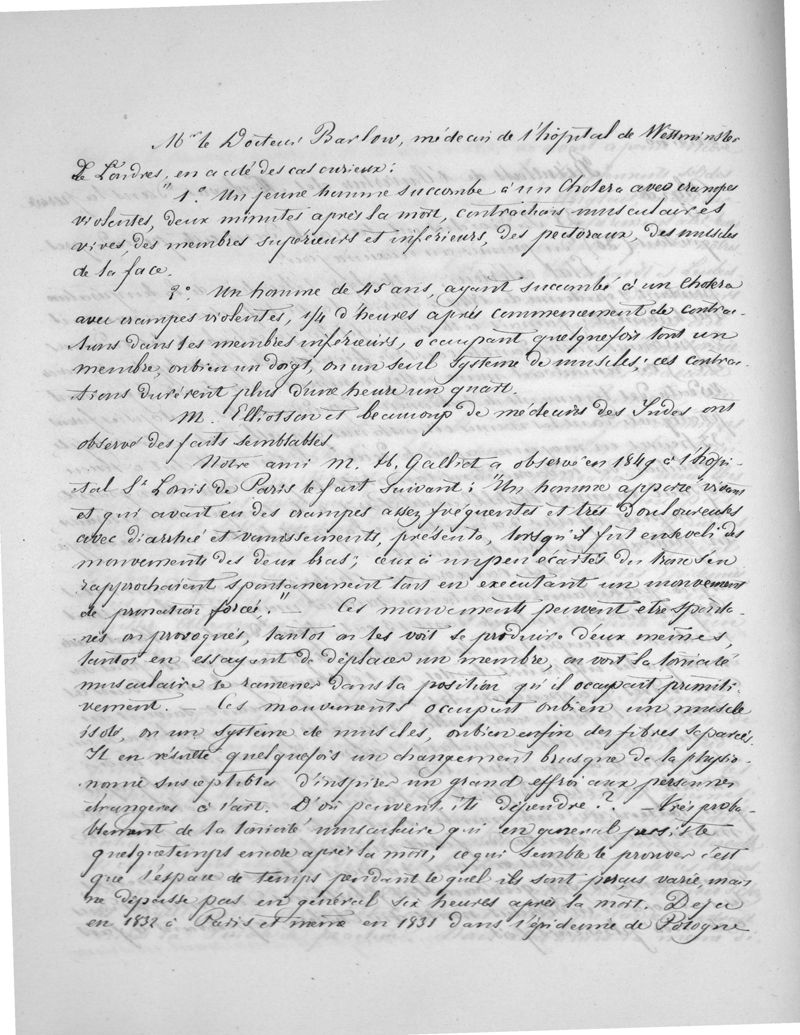 Mr le Docteur Barlow, médecin de l'hôpital de Westminster
de Londres, en a cité des cas curieux:
"1.° Un jeune homme succombe à un Cholera avec crampes
violentes, deux minutes après la mort, contractions musculaires
vives, des membres supérieurs et inférieurs, des pectoraux, des muscles
de la face.
2°. Un homme de 45 ans, ayant succombé à un Cholera
avec crampes violentes, 1/4 d'heures après commencement de contrac-
tions dans les membres inférieurs, occupant quelquefois tout un
membre, ou bien un doigt, ou un seul système de muscles; ces contrac-
tions durèrent plus d'une heure un quart.
M. Elliotson et beaucoup de médecins des Indes ont
observé des faits semblables
Notre ami M. H. Galliot a observé en 1849 à l'hôpi-
tal St Louis de Paris le fait suivant: "Un homme apporté vivant
et qui avait eu des crampes assez fréquentes et très douloureuses
avec diarrhée et vomissements, présenta, lorsqu'il fut enseveli des
mouvements des deux bras; ceux à un peu écartés du tronc s'en
rapprochaient spontanement tout en exécutant un mouvement
de pronation forcée." — Ces mouvements peuvent être sponta-
nés ou provoqués, tantôt on les voit se produire d'eux mêmes,
tantôt en essayant de déplacer un membre, on voit la tonicité
musculaire le ramener dans la position qu'il occupait primiti-
vement. — Ces mouvements occupent ou bien un muscle
isolé, ou un système de muscles, ou bien enfin des fibres séparées.
Il en résulte quelquefois un changement brusque de la physio-
nomie susceptibles d'inspirer un grand effroi aux personnes
étrangères à l'art. D'où peuvent ils dépendre? — très proba-
blement de la tonicité musculaire qui en général persiste
quelque temps encore après la mort, ce qui semble le prouver c'est
que l'espace de temps pendant le quel ils sont perçus varie, mais
ne dépasse pas en général six heures après la mort. Deja
en 1832 à Paris et même en 1831 dans l'épidémie de Pologne